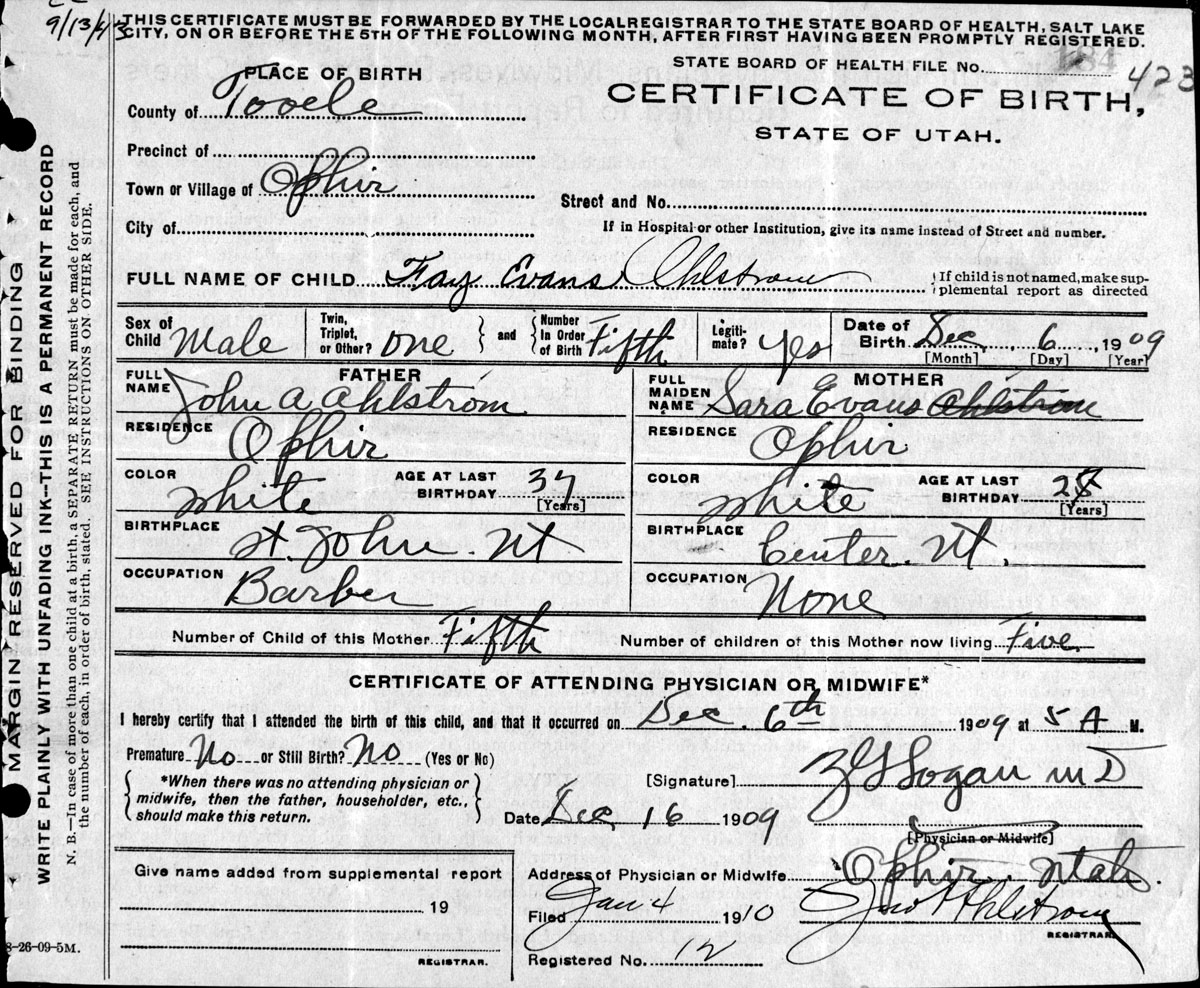 9/13/43
THIS CERTIFICATE MUST BE FORWARDED BY THE LOCAL REGISTRAR TO THE STATE BOARD OF HEALTH, SALT LAKE
CITY, ON OR BEFORE THE 5TH OF THE FOLLOWING MONTH, AFTER FIRST HAVING BEEN PROMPTLY REGISTERED.
PLACE OF BIRTH
STATE BOARD OF HEALTH FILE NO. 184 423
County of Tooele
CERTIFICATE OF BIRTH,
STATE OF UTAH.
Precinct of
Town or Village of Ophir
Street and No.
City of
If in Hospital or other Institution, give its name instead of Street and number.
FULL NAME OF CHILD Fay Evans Ahlstrom
If child is not named, make sup-
plemental report as directed
Sex of Child Male
Twin, Triplet, or Other? One and Number In Order of Birth Fifth
Legiti-mate? Yes
Date of Birth Dec. 6, 1909
[Month] [Day] [Year]
FATHER
FULL NAME John A Ahlstrom
RESIDENCE Ophir
COLOR White AGE AT LAST BIRTHDAY 37 [Years]
BIRTHPLACE St. John. Ut
OCCUPATION Barber
MOTHER
FULL MAIDEN NAME Sara Evans Ahlstrom
RESIDENCE Ophir
COLOR White AGE AT LAST BIRTHDAY 28 [Years]
BIRTHPLACE Center. Ut.
OCCUPATION None
Number of Child of this Mother Fifth Number of children of this Mother now living Five
CERTIFICATE OF ATTENDING PHYSICIAN OR MIDWIFE*
I hereby certify that I attended the birth of this child, and that it occurred on Dec. 6th 1909 at 5 A M.
Premature No or Still Birth? No (Yes or No)
*When there was no attending physician or
midwife, then the father, householder, etc.,
should make this return.
[Signature] Logan M D
Date Dec, 16 1909
[Physician or Midwife]
Give name added from supplemental report
19
REGISTRAR.
Address of Physician or Midwife Ophir. Utah.
Filed Jan 4 1910 Jno A Ahlstrom
REGISTRAR
Registered No. 12
8-26-09-5M.
MARGIN RESERVED FOR BINDING
WRITE PLAINLY WITH UNFADING INK—THIS IS A PERMANENT RECORD
N. B.—In case of more than one child at a birth, a SEPARATE RETURN must be made for each, and
the number of each, in order of birth, stated. SEE INSTRUCTIONS ON OTHER SIDE.